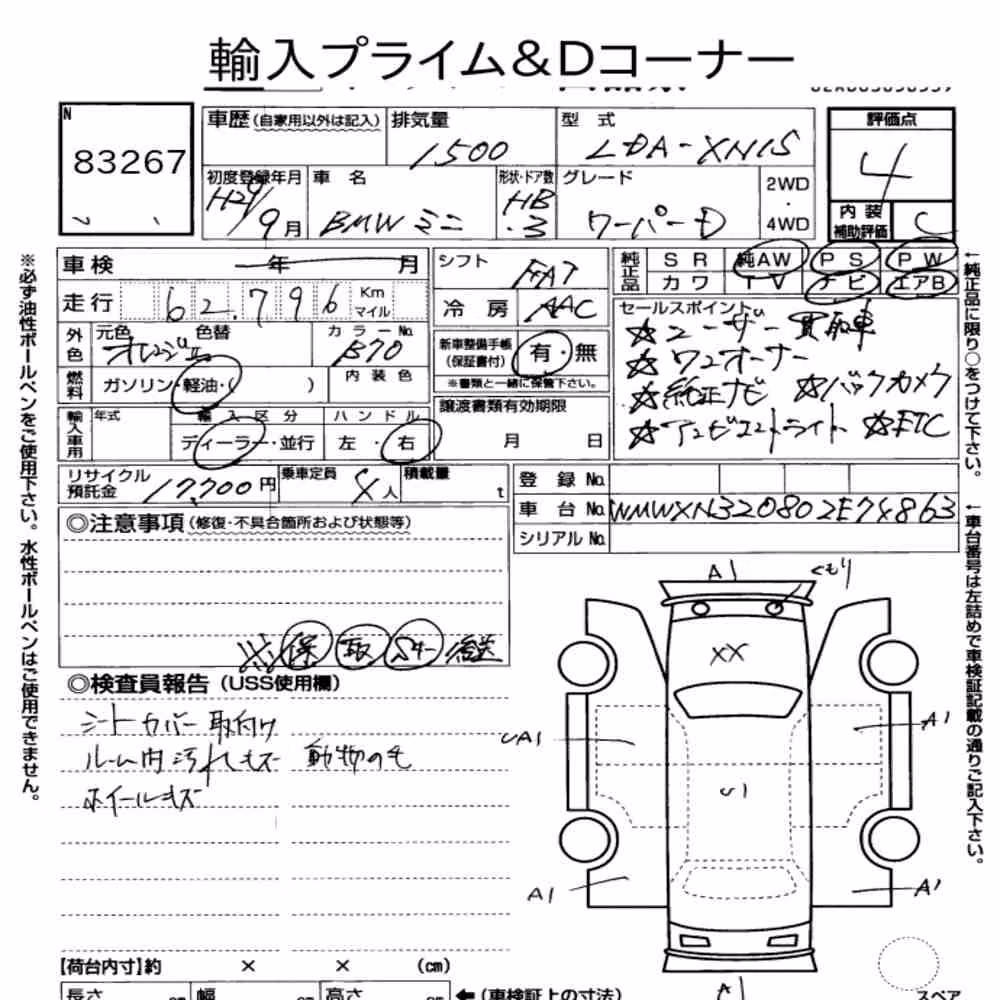 輸入プライム＆Dコーナー
N
83267
車歴(自家用以外は記入)
排気量
1500
型 式
LDA-XN15
評価点
4
初度登録年月
H29/9月
車 名
BMW ミニ
形状・ドア数
HB
3
グレード
クーパーD
2WD
・
4WD
内 装
補助評価
C
車検
年 月
シフト
FAT
純正品
SR
純AW
PS
PW
カワ
TV
ナビ
エアB
走行
62,796
Km
マイル
冷 房
AAC
セールスポイント
☆ユーザー買取車
☆ワンオーナー
☆純正ナビ ☆バックカメラ
☆アンビエントライト ☆ETC
外色
元色
オレンジII
色替
カラーNo.
B70
新車整備手帳
(保証書付)
有・無
※書類と一緒に保管下さい。
燃料
ガソリン・軽油・( )
内装色
譲渡書類有効期限
月 日
輸入車用
年式
輸入区分
ディーラー・並行
ハンドル
左・右
リサイクル
預託金
17,700円
乗車定員
4人
積載量
t
登 録 No.
車 台 No.
WMWXN320802E74863
シリアル No.
◎注意事項(修復・不具合箇所および状態等)
保 取 後送
◎検査員報告(USS使用欄)
シートカバー取付け
ルーム内汚れキズ 動物の毛
ホイールキズ
A1
くもり
XX
UA1
A1
U1
A1
A1
A1
【荷台内寸】約 × × (cm)
長さ cm
幅 cm
高さ cm
←(車検証上の寸法)
スペア
※必ず油性ボールペンをご使用下さい。水性ボールペンはご使用できません。
←純正品に限り○をつけて下さい。
←車台番号は左詰めで車検証記載の通りご記入下さい。